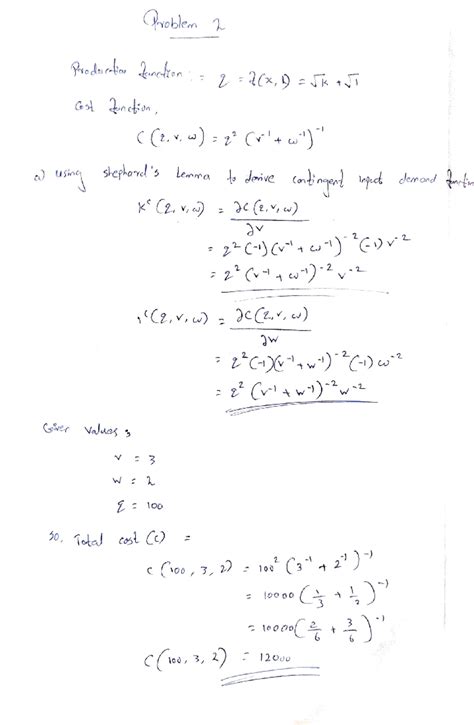 Problem 2
Production function := q = f(K, L) = √K + √l
Cost function,
C (q, v, w) = q² (v⁻¹ + w⁻¹)⁻¹
a) using shephord's lemma to derive contingent input demand function
Kᶜ (q, v, w) = ∂C (q, v, w)
∂v
= q² (-1) (v⁻¹ + w⁻¹)⁻² (-1) v⁻²
= q² (v⁻¹ + w⁻¹)⁻² v⁻²
lᶜ (q, v, w) = ∂C (q, v, w)
∂w
= q² (-1) (v⁻¹ + w⁻¹)⁻² (-1) w⁻²
= q² (v⁻¹ + w⁻¹)⁻² w⁻²
Given values ;
v = 3
w = 2
q = 100
So, Total cost (C) =
C (100, 3, 2) = 100² (3⁻¹ + 2⁻¹)⁻¹
= 10000 (1/3 + 1/2)⁻¹
= 10000 (2/6 + 3/6)⁻¹
C (100, 3, 2) = 12000